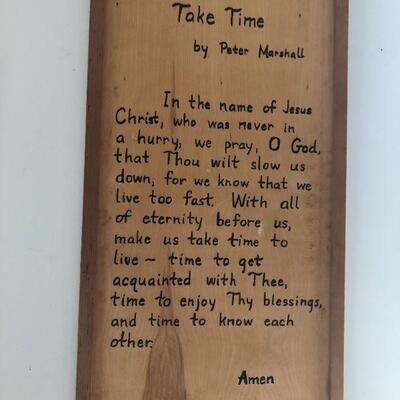 Take Time
by Peter Marshall
In the name of Jesus
Christ, who was never in
a hurry, we pray, O God,
that Thou wilt slow us
down, for we know that we
live too fast. With all
of eternity before us,
make us take time to
live ~ time to get
acquainted with Thee,
time to enjoy Thy blessings,
and time to know each
other.
Amen